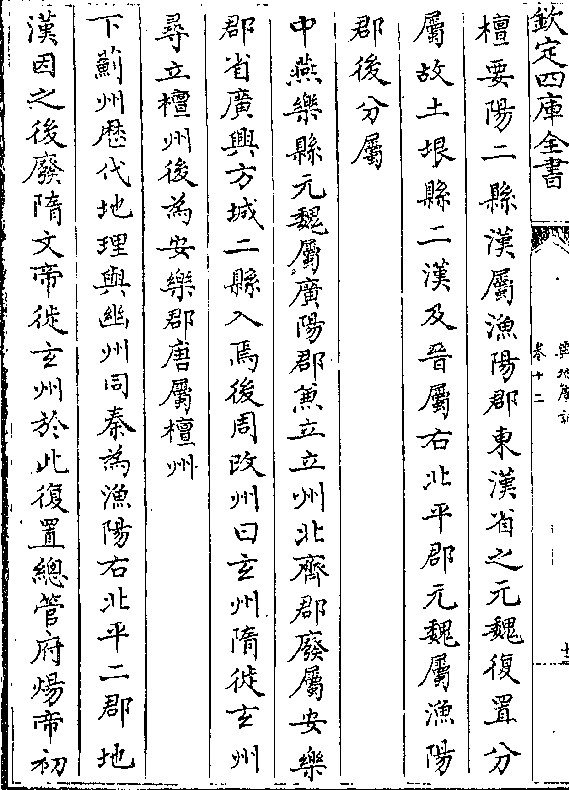 欽定四庫全書
輿地廣記
卷十二
檀要陽二縣漢屬漁陽郡東漢省之元魏復置分
屬故土垠縣二漢及晉屬右北平郡元魏屬漁陽
郡後分屬
中燕樂縣元魏屬廣陽郡兼立立州北齊郡廢屬安樂
郡省廣興方城二縣入焉後周改州曰玄州隋徙玄州
尋立檀州後為安樂郡唐屬檀州
下薊州歷代地理與幽州同秦為漁陽右北平二郡地
漢因之後廢隋文帝徙玄州於此復置總管府煬帝初